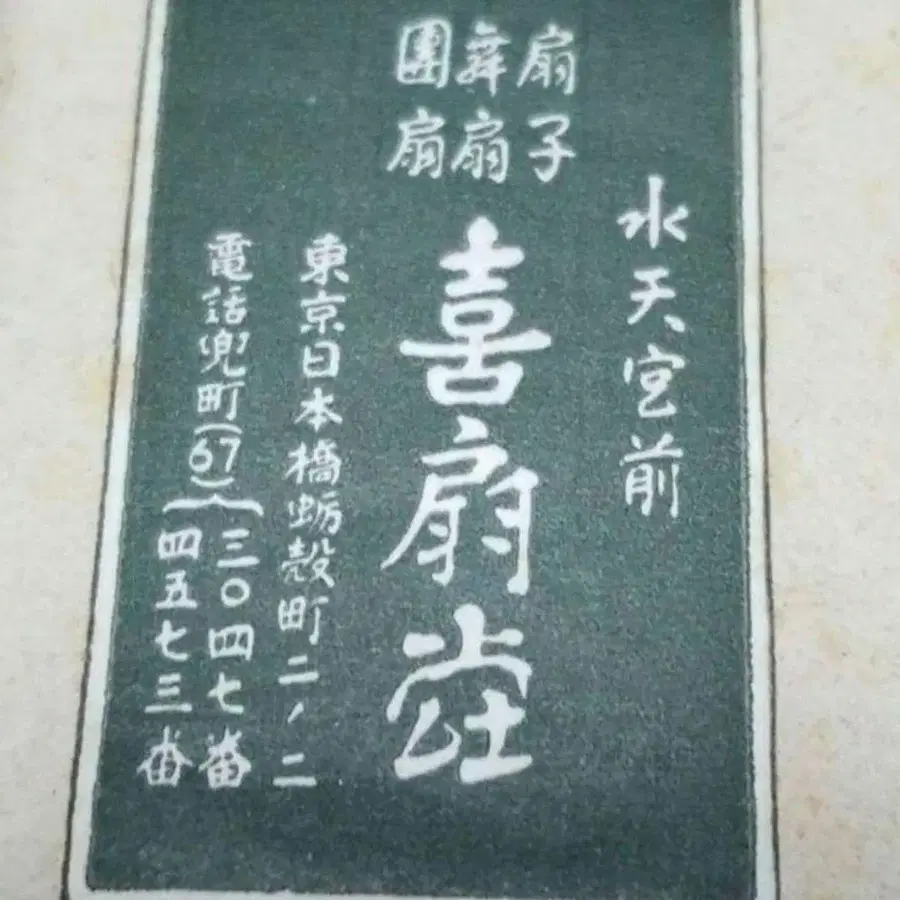 水天宮前
扇子
舞扇
團扇
喜扇堂
東京日本橋蛎殻町二ノ二
電話兜町(67)三〇四七番
四五七三番